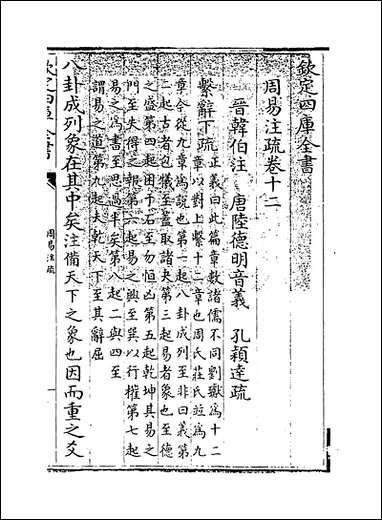 欽定四庫全書
周易注疏卷十二
晉韓伯注 唐陸德明音義 孔穎達疏
繫辭下疏 正義曰此篇章數諸儒不同劉瓛為十二
章以對上繫十二章也周氏莊氏並為九
章今從九章為說也第一起八卦成列至非曰義第
二起古者包犧至蓋取諸夬第三起易者象也至德
之盛第四起困于石至勿恒凶第五起乾坤其易之
門至失得之報第六起易之興至巽以行權第七起
易之為書至思過半矣第八起二與四至
謂易之道第九起夫乾天下至其辭屈
八卦成列象在其中矣注備天下之象也因而重之爻
欽定四庫全書
周易注疏
一